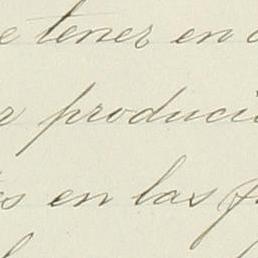 e tener en
r produci
s en las f